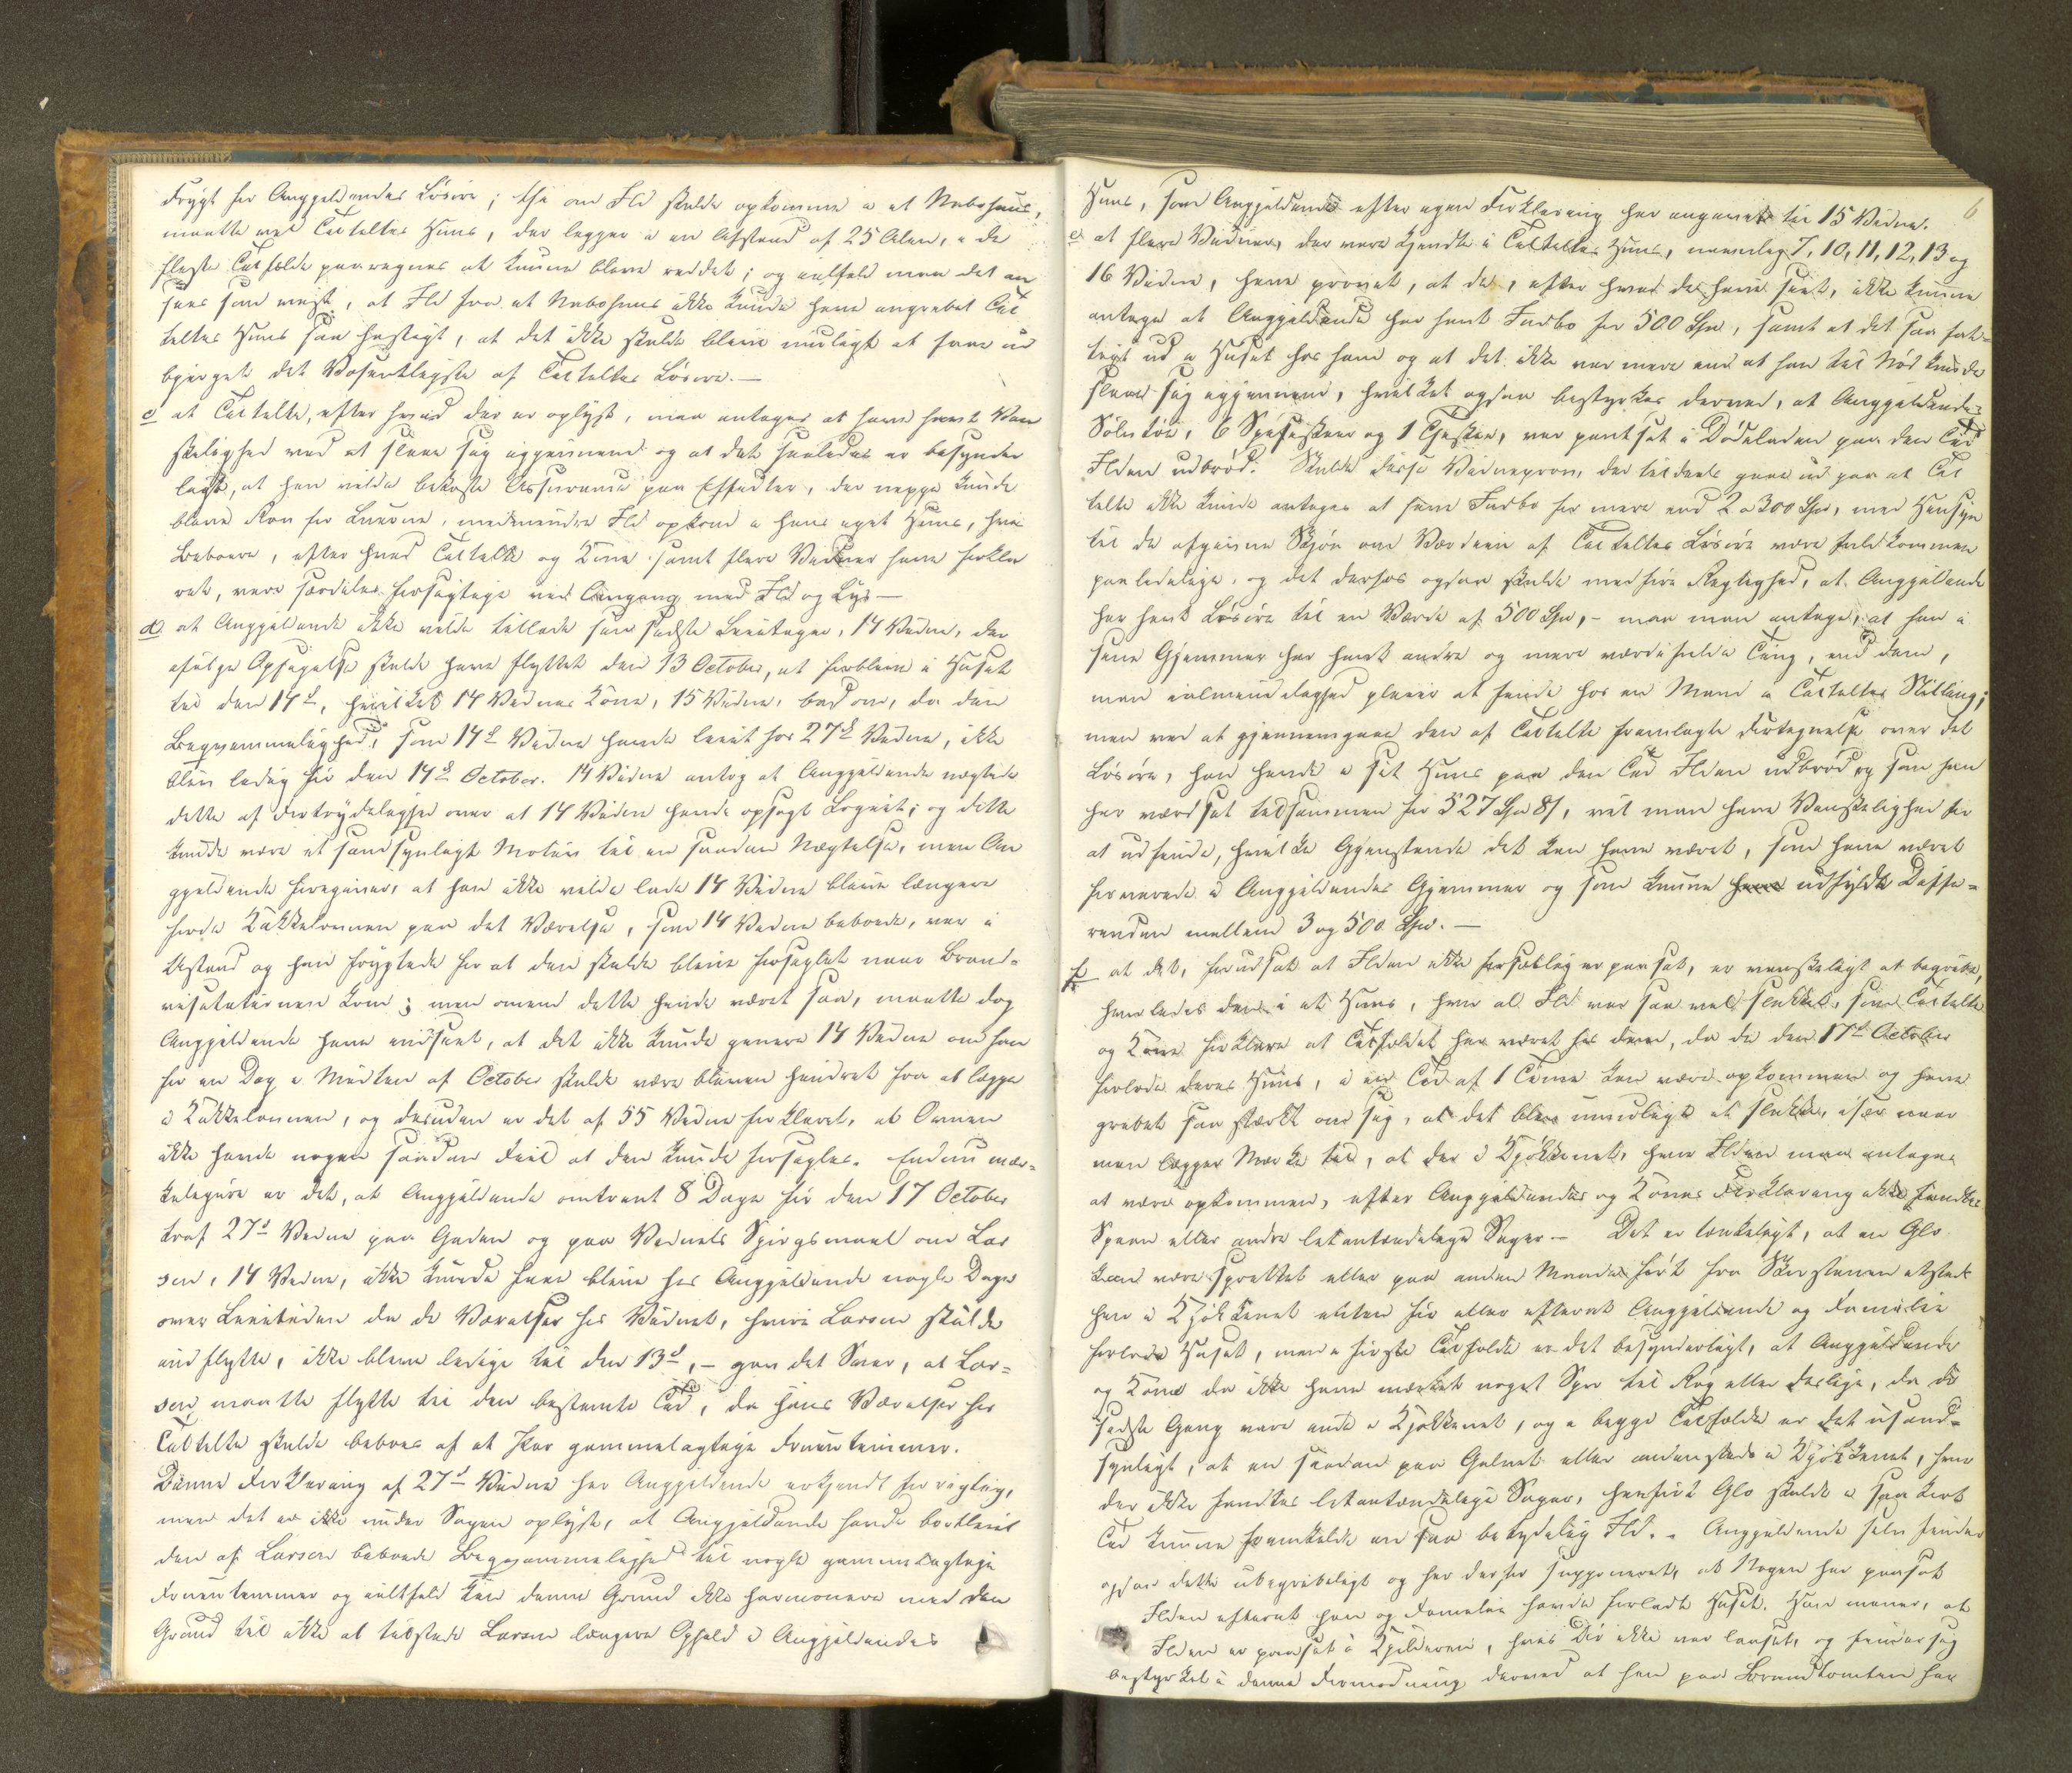 Frygt for Anggjeldendes Løsøre; thi om Ild skulde opkomme i et Nabohuus,
maatte vel Tiltaltes Huus, der ligger i en Afstand af 25 Alen, i de
fleste Tilfælde paaregnes at kunne blive reddet; og ialfald maa det an
sees som vist, at Ild fra et Nabohuus ikke kunde have angrebet Til
taltes Huus saa hastigt, at det ikke skulde blive muligt at faae ud
bjerget det Væsentligste af Tiltaltes Løsøre. —
c at Tiltalte, efter hvad der er oplyst, maa antages at have havt Van
skelighed ved at slaae sig igjennem og at det saaledes er besynder
ligt, at han vilde bekoste Assurance paa Effecter, der neppe kunde
blive Rov for Luerne, medmindre Ild opkom i hans eget Huus, hvis
Beboere, efter hvad Tiltalte og Kone samt flere Vidner have forkla
ret, vare særdeles forsigtige ved Omgang med Ild og Lys —
d at Anggjeldende ikke vilde tillade sin sidste Leietager, 14 Vidne, der
ifølge Opsigelse skulde have flyttet den 13 October, at forblive i Huset
til den 14d, hvilket 14 Vidnes Kone, 15 Vidne, bad om, da den
Beqvemmelighed, som 14d Vidne havde leiet hos 27d Vidne, ikke
blev ledig før den 14d October. 14 Vidne antog at Anggjeldende nægtede
dette af Fortrydelighed over at 14 Vidne havde opsagt Logiet; og dette
kunde være et sandsynligt Motiv til en saadan Nægtelse, men An
ggjeldende foregiver, at han ikke vilde lade 14 Vidne blive længere
fordi Kakkelovnen paa det Værelse, som 14 Vidne beboede, var i
Ustand og han frygtede for at den skulde blive forseglet naar Brand-
visitationen kom; men omend dette havde været saa, maatte dog
Anggjeldende have indseet, at det ikke kunde genere 14 Vidne om han
for en Dag i Midten af October skulde være bleven hindret fra at lægge
i Kakkelovnen, og desuden er det af 55 Vidne forklaret, at Ovnen
ikke havde nogen saadan Feil at den kunde forsegles. Endnu mær-
keligere er det, at Anggjeldende omtrent 8 Dage før den 17 October
traf 27d Vidne paa Gaden og paa Vidnets Spørgsmaal om Lar
sen, 14 Vidne, ikke kunde faae blive hos Anggjeldende nogle Dage
over Leietiden da de Værelser hos Vidnet, hvori Larsen skulde
indflytte, ikke bleve ledige til den 13d, – gav det Svar, at Lar-
sen maatte flytte til den bestemte Tid, da hans Værelser hos
Tiltalte skulde beboes af et Par gammelagtige Fruentimmer.
Denne Forklaring af 27d Vidne har Anggjeldende erkjendt for rigtig,
men det er ikke under Sagen oplyst, at Anggjeldende havde bortleiet
den af Larsen beboede Beqvemmelighed til nogle gammelagtige
Fruentimmer og ialtfald kan denne Grund ikke harmonere med den
Grund til ikke at tilstede Larsen længere Ophold i Anggjeldendes
6
Huus, som Anggjeldende efter egen Forklaring har angivet til 15 Vidne.
e at flere Vidner, der vare kjendte i Tiltaltes Huus, navnlig 7, 10, 11, 12, 13 og
16 Vidne, have provet, at de, efter hvad de have seet, ikke kunne
antage at Anggjeldende har havt Indbo for 500 Spd, samt at det saa fat-
tigt ud i Huset hos ham og at det ikke var mere end at han til Nød kunde
slaae sig igjennem, hvilket ogsaa bestyrkes derved, at Anggjeldendes
Sølvtøi, 6 Spiseskeer og 1 Theskee, var pantsat i Døveladen paa den Tid
Ilden udbrød. Skulde disse Vidneprov, der tildeels gaae ud paa at Til
talte ikke kunde antages at have Indbo for mere end 2 a 300 Spd, med Hensyn
til de afgivne Skjøn om Værdien af Tiltaltes Løsøre være fuldkommen
paalidelige, og det derhos ogsaa skulde medføre Rigtighed, at Anggjeldende
har havt Løsøre til en Værdi af 500 Spd, – maa man antage, at han i
sine Gjemmer har havt andre og mere værdifulde Ting, end dem,
man ialmindelighed pleier at finde hos en Mand i Tiltaltes Stilling;
men ved at gjennemgaae den af Tiltalte fremlagte Fortegnelse over det
Løsøre, han havde i sit Huus paa den Tid Ilden udbrød og som han
har værdsat tilsammen for 527 Spd 8/, vil man have Vanskelighed for
at udfinde, hvilke Gjenstande det kan have været, som have været
forvarede i Anggjeldendes Gjemmer og som kunne have udfyldt Diffe-
rensen mellem 3 og 500 Spd. —
f at det, forudsat at Ilden ikke forsætlig er paasat, er vanskeligt at begribe,
hvorledes den i et Huus, hvor al Ild var saa vel slukket, som Tiltalte
og Kone forklare at Tilfældet har været hos dem, da de den 17d October
forlode deres Huus, i en Tid af 1 Time kan være opkommen og have
grebet saa stærkt om sig, at det blev umuligt at slukke, især naar
man lægger Mærke til, at der i Kjøkkenet, hvor Ilden maa antages
at være opkommen, efter Anggjeldendes og Kones Forklaring ikke fandtes
Spaan eller andre letantændelige Sager. — Det er tænkeligt, at en Glo
kan være sprættet eller paa anden Maade ført fra Skorstenen etsteds
hen i Kjøkkenet enten før eller efterat Anggjeldende og Familie
forlode Huset, men i første Tilfælde er det besynderligt, at Anggjeldende
og Kone da ikke have mærket noget Spor til Røg eller deslige, da de
sidste Gang vare inde i Kjøkkenet, og i begge Tilfælde er det usand-
synligt, at en saadan paa Gulvet eller andensteds i Kjøkkenet, hvor
der ikke fandtes letantændelige Sager, henført Glo skulde i saa kort
Tid kunne fremkalde en saa betydelig Ild. – Anggjeldende selv finder
ogsaa dette ubegribeligt og har derfor supponeret, at Nogen har paasat
Ilden efterat han og Familie havde forladt Huset. Han mener, at
Ilden er paasat i Kjelderen, hvis Dør ikke var laaset, og finder sig
bestyrket i denne Formodning derved at han paa Brandtomten har